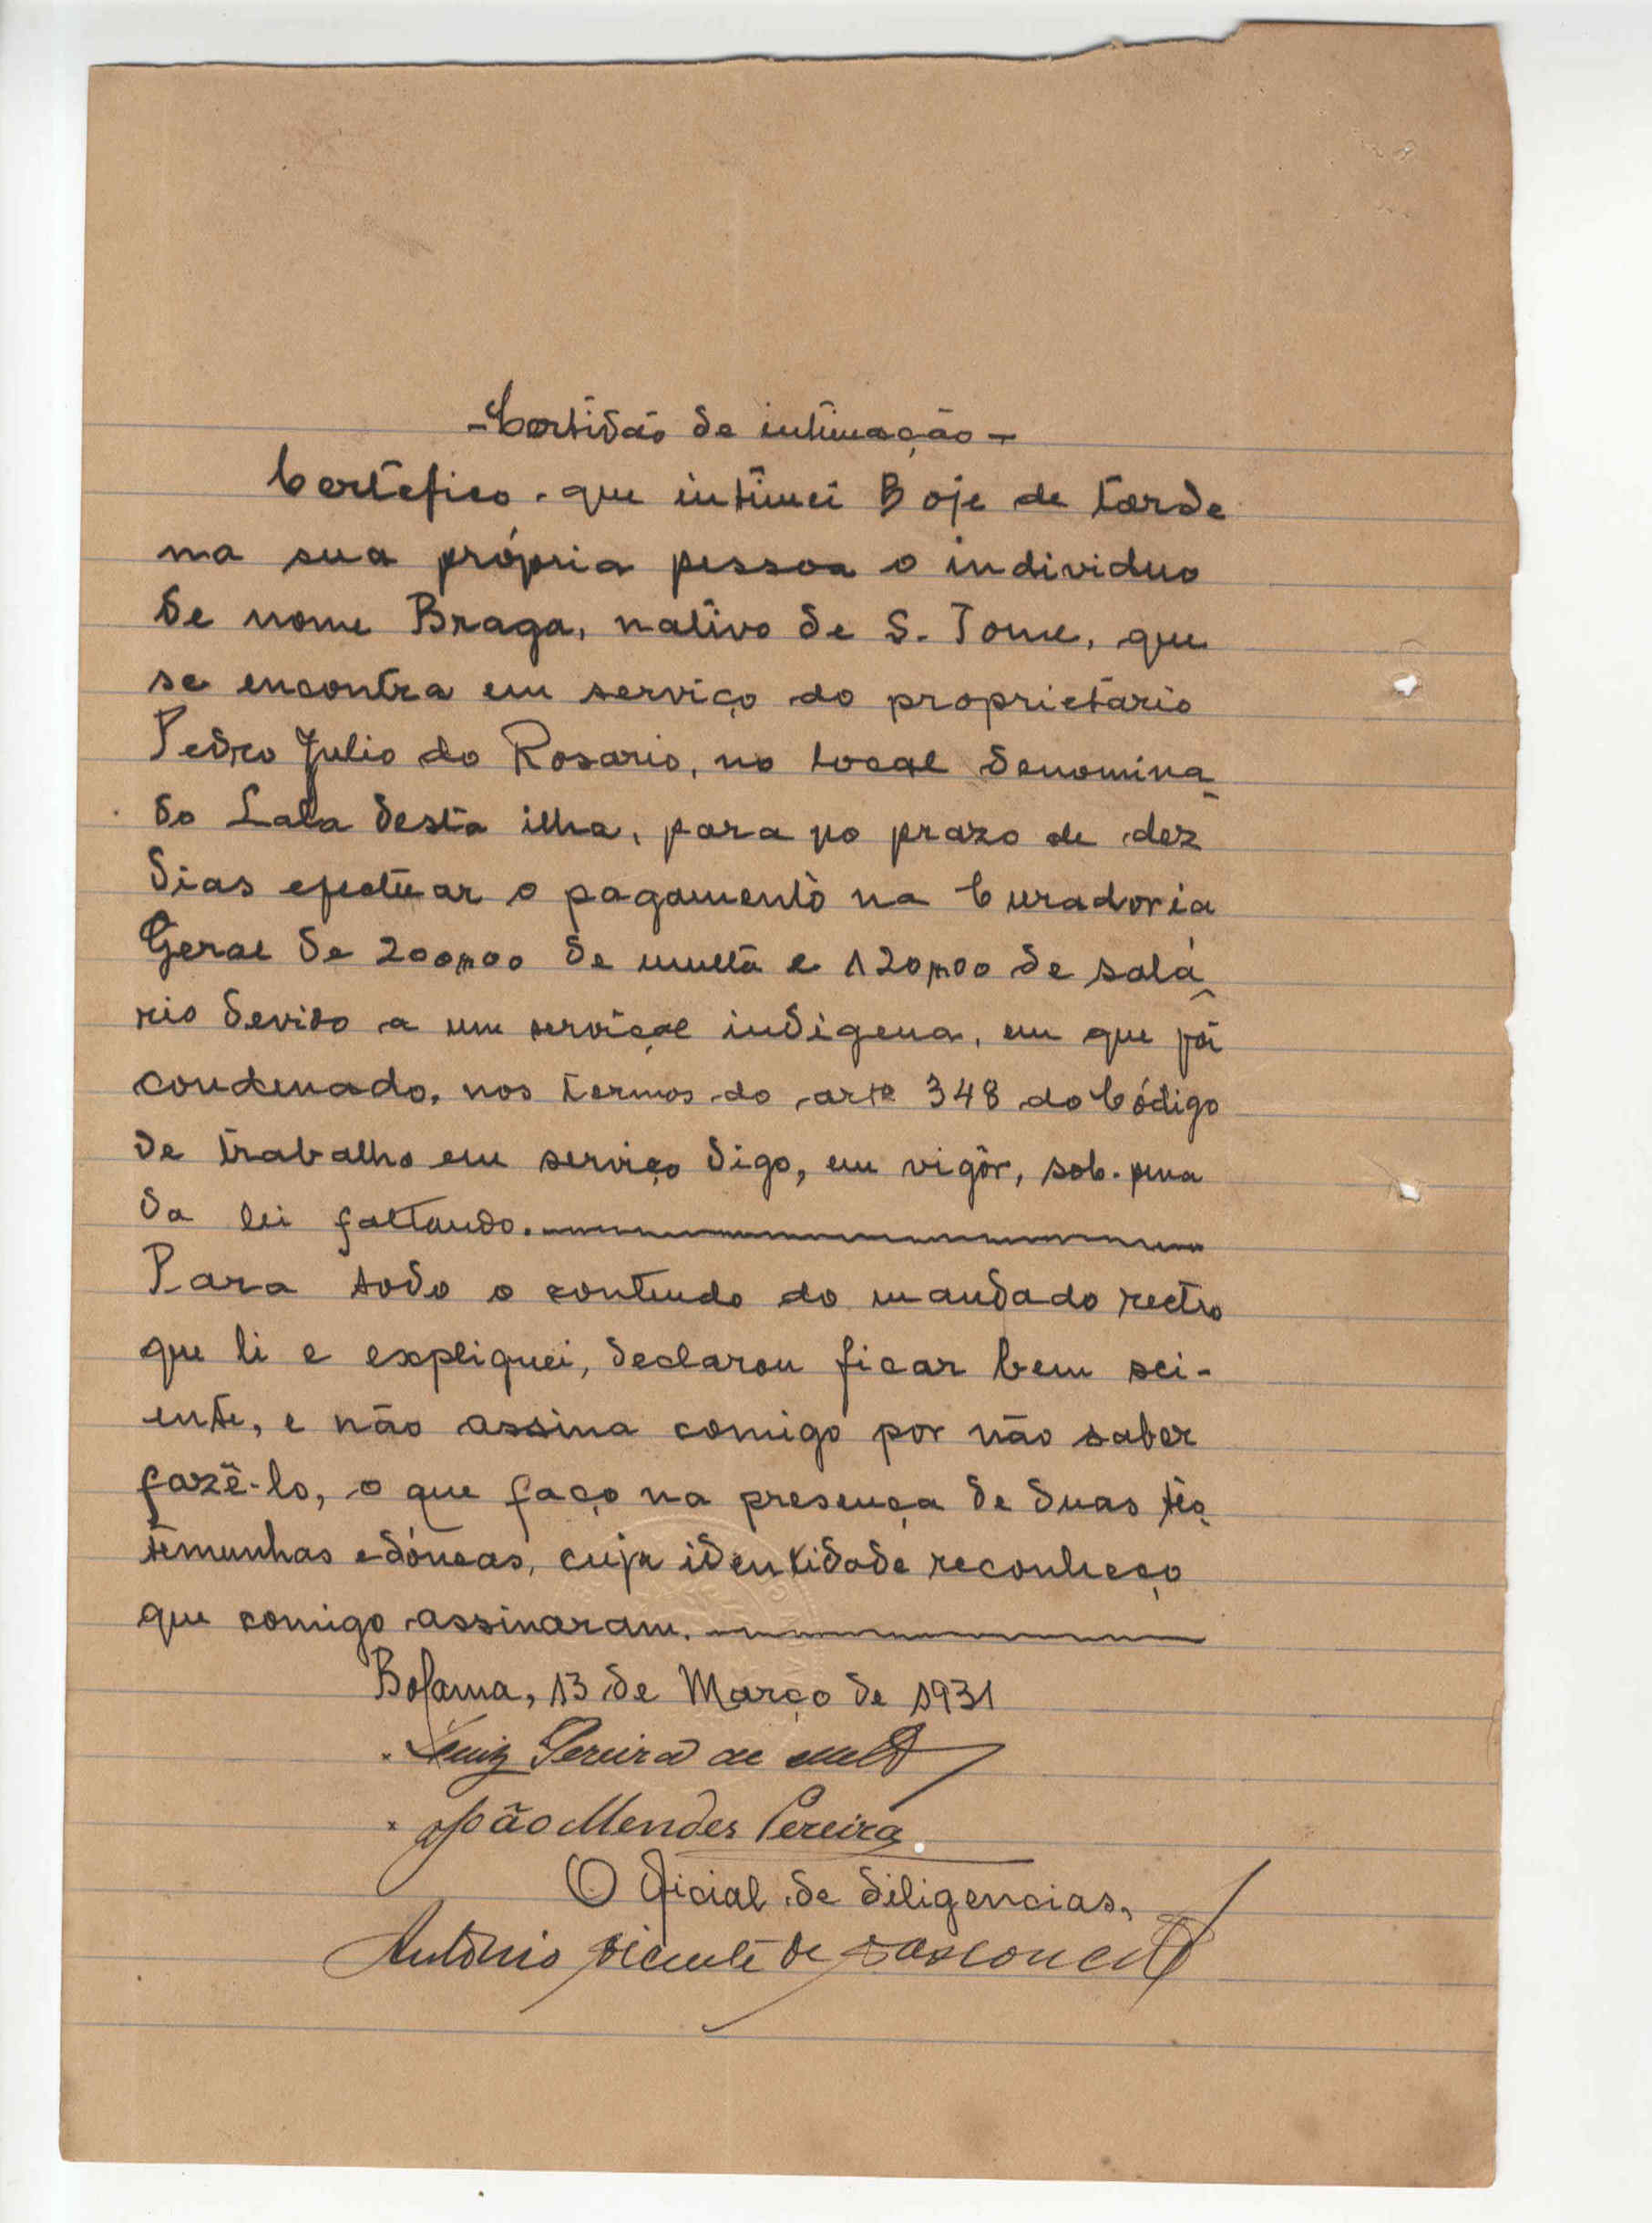 - Certidão de intimação -
Certefico que intimei hoje de tarde
na sua própria pessoa o individuo
de nome Braga, nativo de S. Tome, que
se encontra em serviço do proprietario
Pedro Julio do Rosario, no local denomina-
do Lala desta ilha, para no prazo de dez
dias efectuar o pagamento na Curadoria
Geral de 200$00 de multa e 120$00 de salá-
rio devido a um serviçal indigena, em que foi
condenado, nos termos do artº 348 do Código
de trabalho em serviço digo, em vigôr, sob pena
da lei faltando.
Para todo o contendo do mandado rectro
que li e expliquei, declarou ficar bem sci-
ente, e não assina comigo por não saber
fazê-lo, o que faço na presença de duas tes-
temunhas edóneas, cuja identidade reconheço
que comigo assinaram.
Bolama, 13 de Março de 1931
Luiz Pereira de
João Mendes Pereira.
O Oficial de diligencias,
António Vicente de Vasconcelos